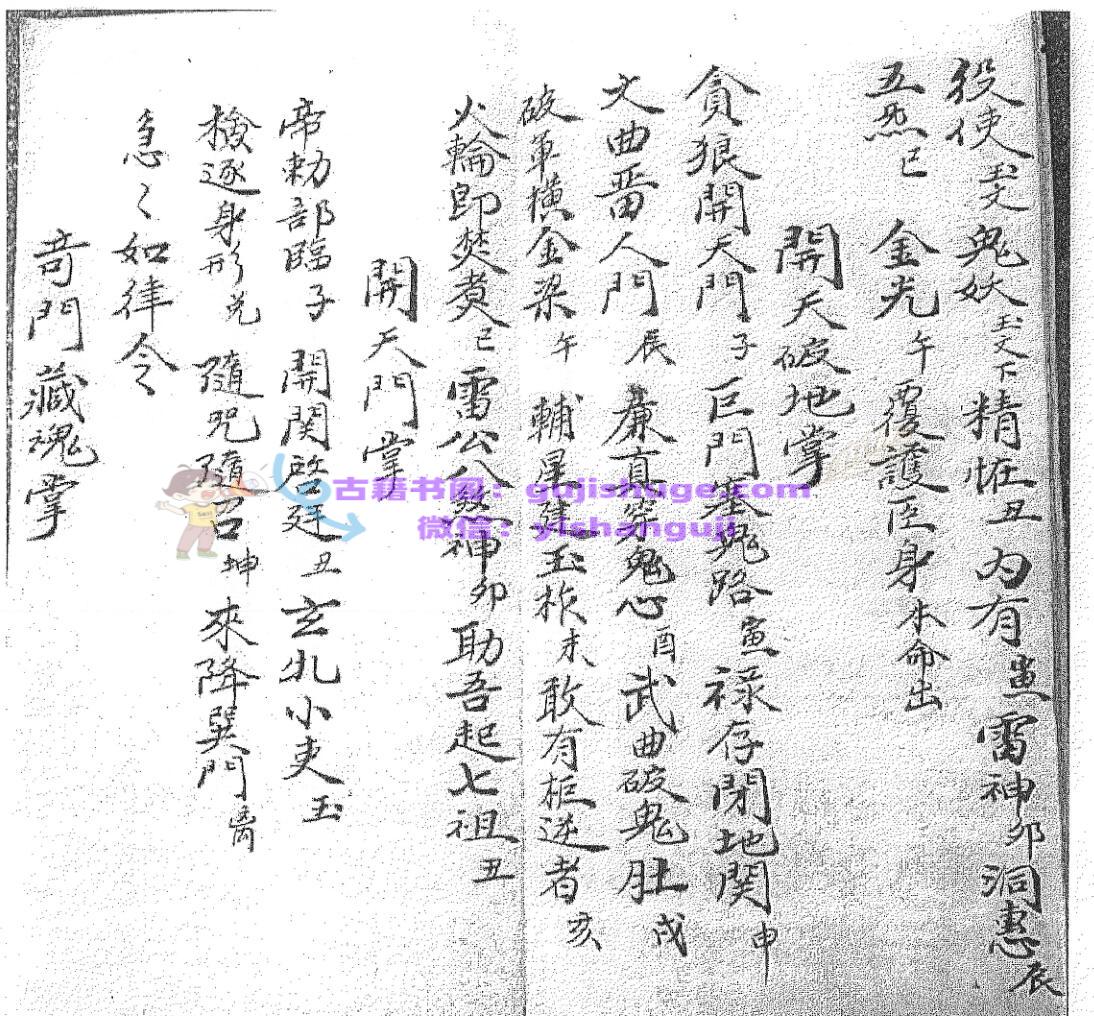 役使玉文鬼妖玉文下精怪丑内有寅雷神卯洞慧辰
五炁巳 金光午覆護臣身本命出
開天破地掌
貪狼開天門子 巨門塞鬼路寅 禄存閉地関申
文曲畱人門辰 廉真穿鬼心酉 武曲破鬼肚戌
破軍横金梁午 輔星建玉柞未敢有柜逆者亥
火輪即焚煑巳雷公八煞神卯助吾起七祖丑
開天門掌
帝勅部臨子 開関啓廷丑 玄北小吏玉
撥逐身形兑 隨咒隨召坤 來降巽門离
急々如律令
奇門藏魂掌
古籍书阁：gujishuge.com
微信：yishanguji